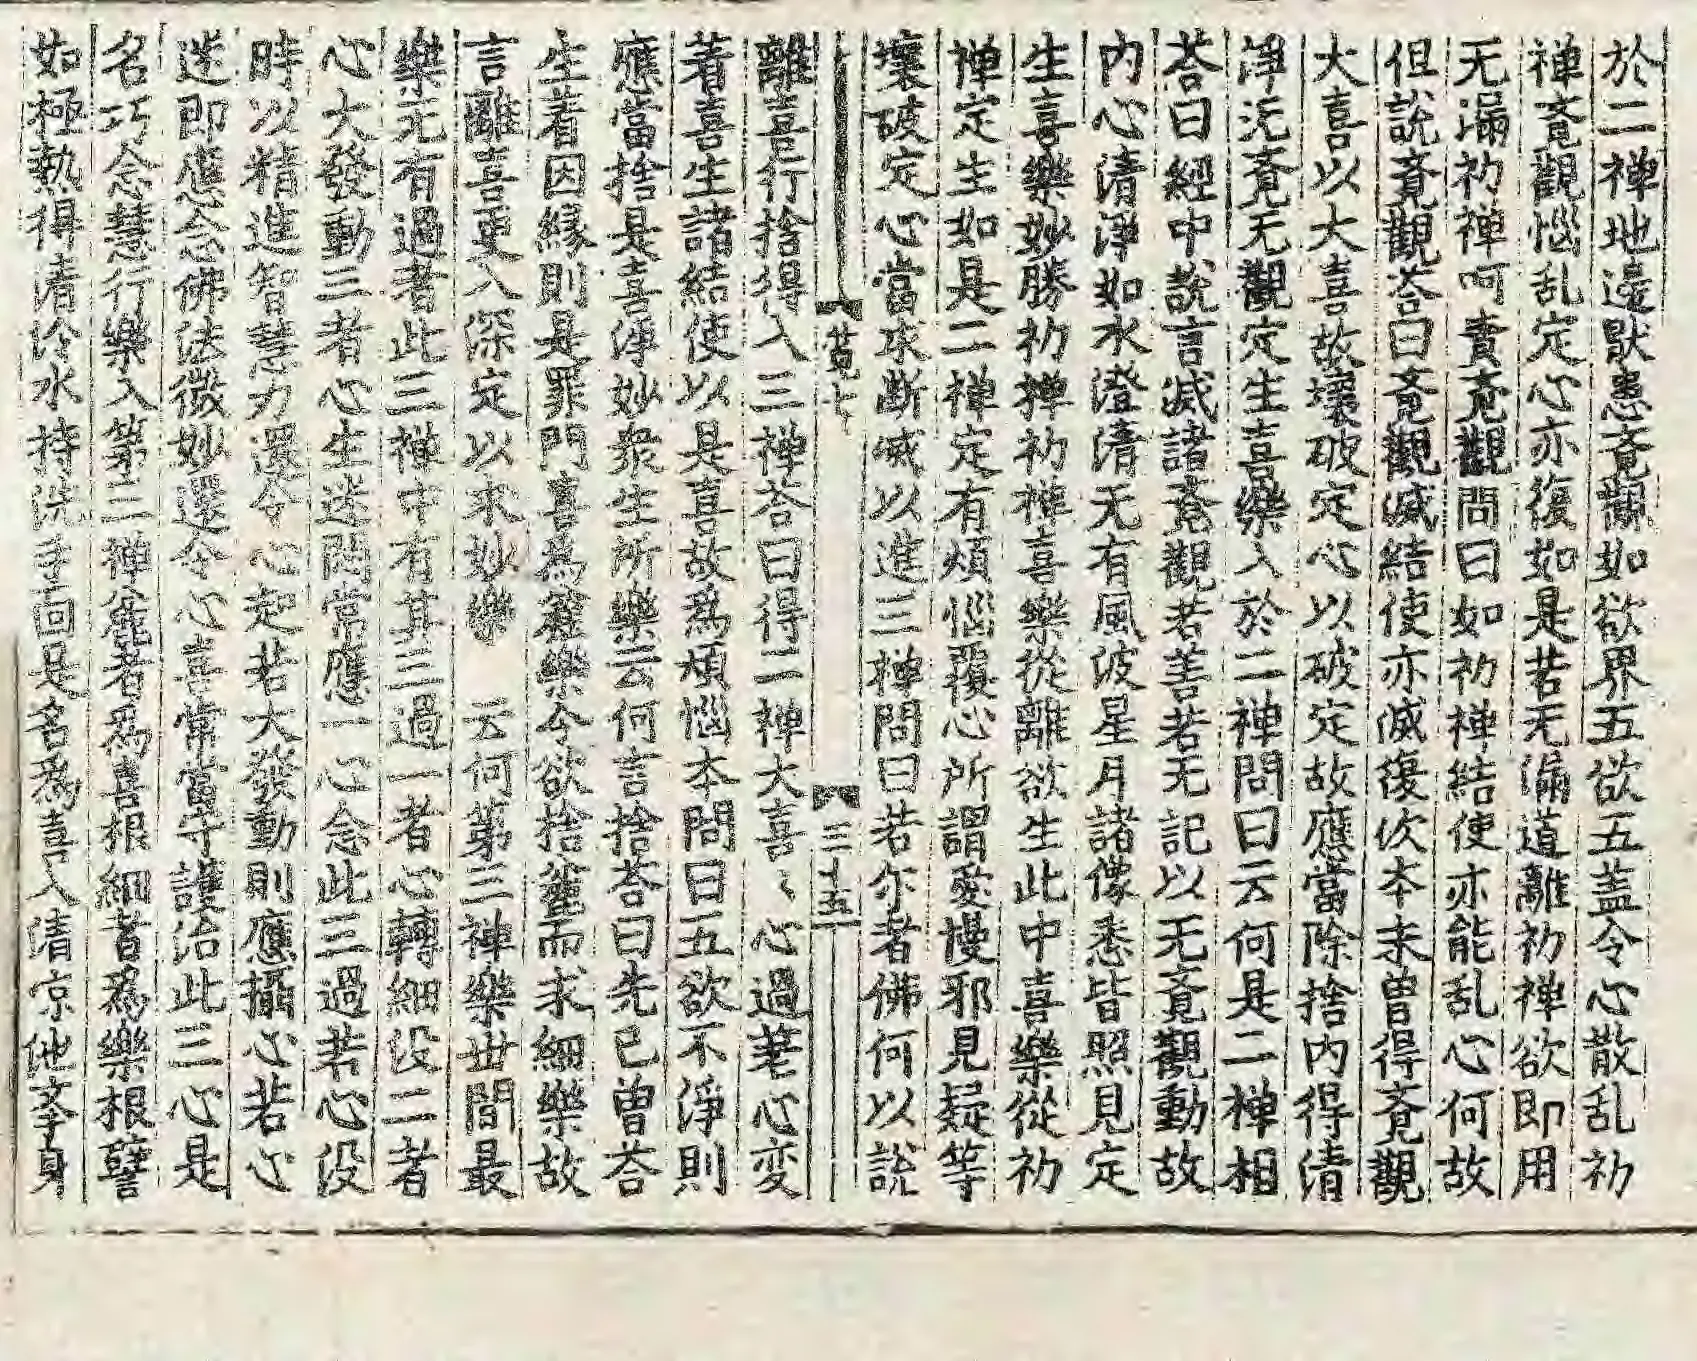 於二禅地邉猒患覔觀如欲界五欲五盖令心散乱初
禅覔觀惱乱定心亦復如是若无漏道離初禅欲即用
无漏初禅呵責覔觀問曰如初禅結使亦能乱心何故
但說覔觀荅曰覔觀滅結使亦滅復次本未曽得覔觀
大喜以大喜故壞破定心以破定故應當除捨内得清
淨无覔无觀定生喜樂入於二禅問曰云何是二禅相
荅曰經中說言滅諸覔觀若善若无記以无覔觀動故
内心清淨如水澄清无有風波星月諸像悉皆照見定
生喜樂妙勝初禅初禅喜樂從離欲生此中喜樂從初
禅定生如是二禅定有煩惱覆心所謂愛慢邪見疑等
壞破定心當求断滅以進三禅問曰若尔者佛何以說
苐七 三十五
離喜行捨得入三禅荅曰得二禅大喜〻心過荖心变
著喜生諸結使以是喜故爲煩惱本問曰五欲不淨則
應當捨是喜淨妙衆生所樂云何言捨荅曰先已曽荅
生著因縁則是罪門喜為麁樂令欲捨麁而求細樂故
言離喜更入深定以求妙樂 云何第三禅樂丗間最
樂无有過者此三禅中有其三過一者心轉細没二者
心大發動三者心生迷悶常應一心念此三過若心没
時以精進智慧力還令心起若大發動則應攝心若心
迷即應念佛法微妙還令心喜常當守護治此三心是
名巧念慧行樂入第三禅麁者爲喜根細者爲樂根譬
如極熱得清冷水持洗手面是名爲喜入清凉池举身